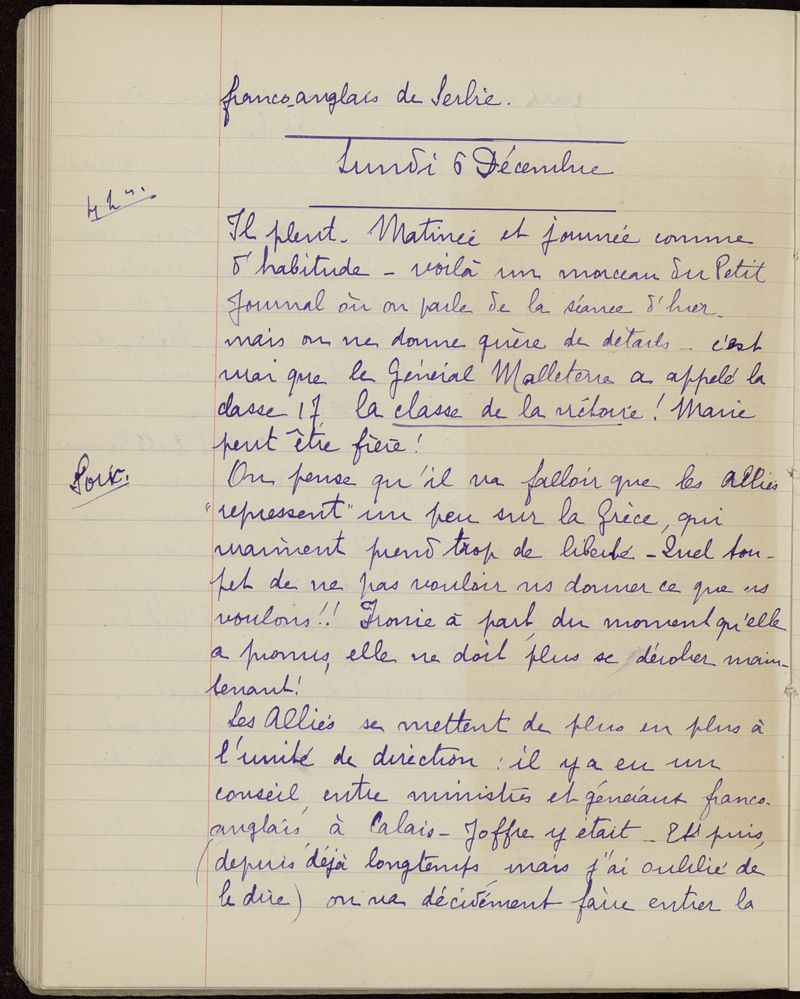 franco-anglais de Serbie.
Lundi 6 Décembre
4 h
Il pleut. Matinée et journée comme
d'habitude - voilà un morceau du Petit
Journal où on parle de la séance d'hier.
mais on ne donne guère de détails - c'est
vrai que le Général Malleterre a appelé la
classe 17 la classe de la victoire ! Marie
peut être fière !
On pense qu'il va falloir que les Alliés
"repressent" un peu sur la Grèce, qui
vraiment prend trop de liberté - Quel tou-
pet de ne pas vouloir ns donner ce que ns
voulons !! Ironie à part, du moment qu'elle
a promis, elle ne doit plus se dérober main-
tenant !
Les Alliés se mettent de plus en plus à
l'unité de direction : il y a eu un
conseil entre ministres et généraux franco-
anglais à Calais - Joffre y était - Et puis,
(depuis déjà longtemps, mais j'ai oublié de
le dire) on va décidément faire entrer la